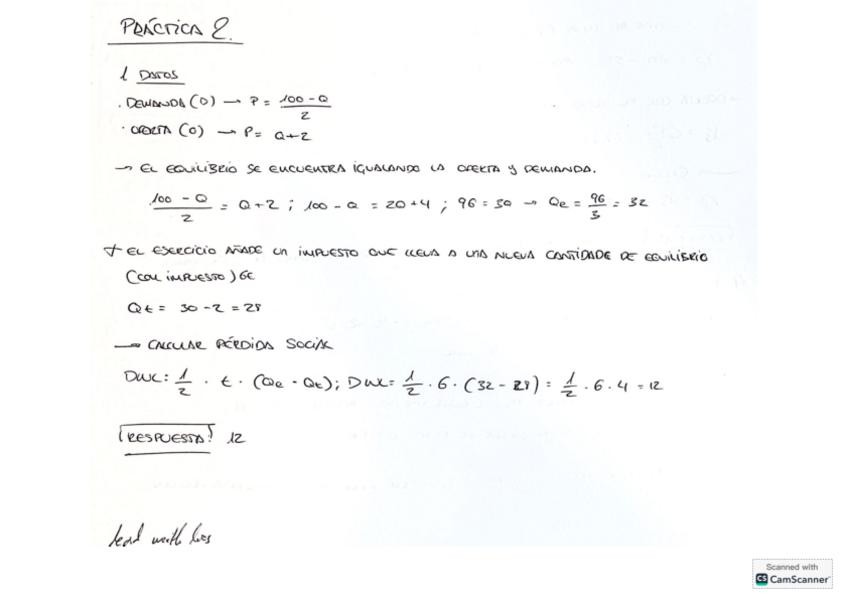 PRÁCTICA 2.
1 DATOS
· DEMANDA (D) → P = (100 - Q)/2
· OFERTA (O) → P = Q+2
→ EL EQUILIBRIO SE ENCUENTRA IGUALANDO LA OFERTA Y DEMANDA.
(100 - Q)/2 = Q+2 ; 100 - Q = 2Q+4 ; 96 = 3Q → Qe = 96/3 = 32
+ EL EJERCICIO AÑADE UN IMPUESTO QUE LLEVA A UNA NUEVA CANTIDADE DE EQUILIBRIO
(CON IMPUESTO) 6€
Qt = 30 - 2 = 28
→ CALCULAR PÉRDIDA SOCIAL
DWL: 1/2 · t · (Qe - Qt); DWL = 1/2 · 6 · (32 - 28) = 1/2 · 6 · 4 = 12
RESPUESTA: 12
Scanned with
CS CamScanner